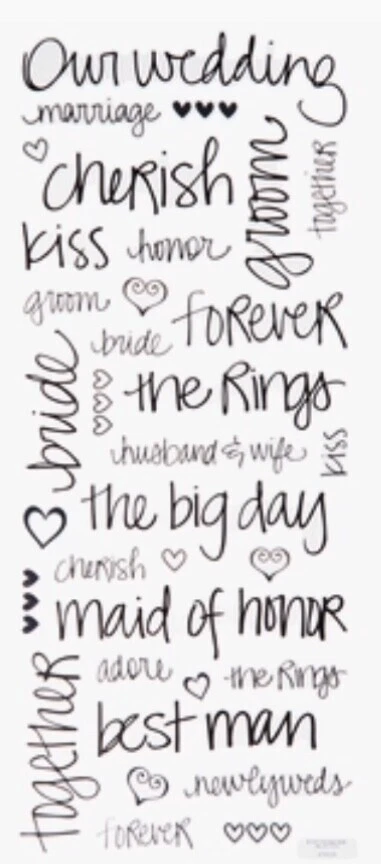 Our wedding
marriage
together
groom
cheRish
kiss honor
groom
foReveR
bride
bride
the Rings
husband & wife
kiss
the big day
cheRish
maid of honoR
adore
the Rings
togetheR
best man
newlyweds
foReveR